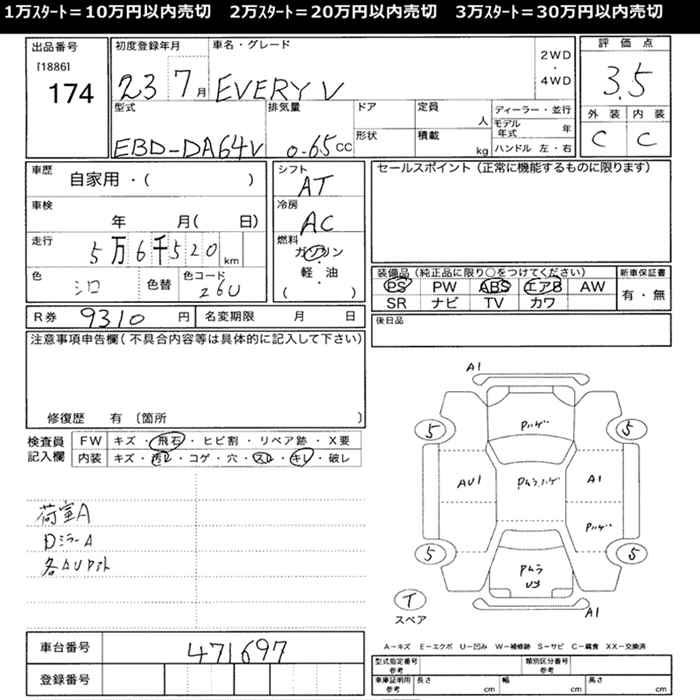 1万スタート＝10万円以内売切　2万スタート＝20万円以内売切　3万スタート＝30万円以内売切
出品番号
[1886]
174
初度登録年月
23 7月
車名・グレード
EVERY V
2WD
・
4WD
評価点
3.5
外装 内装
C C
型式
EBD-DA64V
排気量
0.65CC
ドア
形状
定員
人
積載
kg
ディーラー・並行
モデル年式 年
ハンドル 左・右
車歴
自家用・( )
車検
年 月( 日)
走行
5万6千520km
色
シロ
色替
色コード
26U
シフト
AT
冷房
AC
燃料
ガソリン
・
軽・油
( )
セールスポイント（正常に機能するものに限ります）
装備品（純正品に限り○をつけてください）
PS PW ABS エアB AW
SR ナビ TV カワ
新車保証書
有・無
後日品
R券 9310円
名変期限 月 日
注意事項申告欄（不具合内容等は具体的に記入して下さい）
修復歴 有 〔箇所 〕
検査員
記入欄
FW キズ・飛石・ヒビ割・リペア跡・X要
内装 キズ・汚レ・コゲ・穴・スレ・キレ・破レ
荷室A
DミラーA
各AUアリ
A1
5
5
Pハゲ
AU1
PムラハゲA1
Pハゲ
5
5
Pムラ
U3
T
スペア
A1
A－キズ E－エクボ U－凹み W－補修跡 S－サビ C－腐食 XX－交換済
車台番号
471697
登録番号
型式指定番号
参考
類別区分番号
参考
車庫証明用
参考
長さ cm
幅 cm
高さ cm